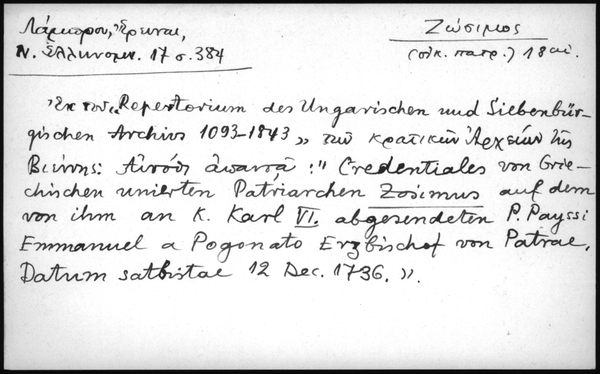 Λάμπρου, Ἔρευναι,
Ν. Ἑλληνομν. 17 σ. 384
Ζώσιμος
(οἰκ. πατρ.) 18 αἰ.
Ἐκ τοῦ „Repertorium des Ungarischen und Siebenbür-
gischen Archivs 1093-1843 „ τῶν κρατικῶν Ἀρχείων τῆς
Βιέννης: ἁπαντᾷ : " Credentiales von Grie-
chischen unierten Patriarchen Zosimus auf dem
von ihm an K. Karl VI. abgesendeten P. Payssi
Emmanuel a Pogonato Erzbischof von Patrae.
Datum satbistae 12 Dec. 1736. „.